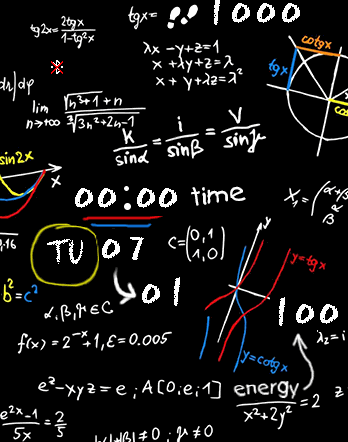 tgx= !! 1000
tg2x= 2tgx / 1-tg²x
λx -y+z=1
x +λy+z=λ
x + y+λz=λ²
cotgx
tgx
lim n→+∞ √n³+1 + n / ³√3n³+2n-1
K/sinα = i/sinβ = V/sinγ
sin2x
x
00:00 time
TU 07
C=(0,1 1,0)
y
x
y=tgx
b²=c²
01
α,β,γ∈C
100
f(x)=2⁻ˣ+1,ε=0.005
λ₂=i
y=cotgx
e²-xyz=e; A[0;e;1]
energy / x²+2y² =2
e²ˣ-1 / 5x = 2/5
≠0; γ≠0